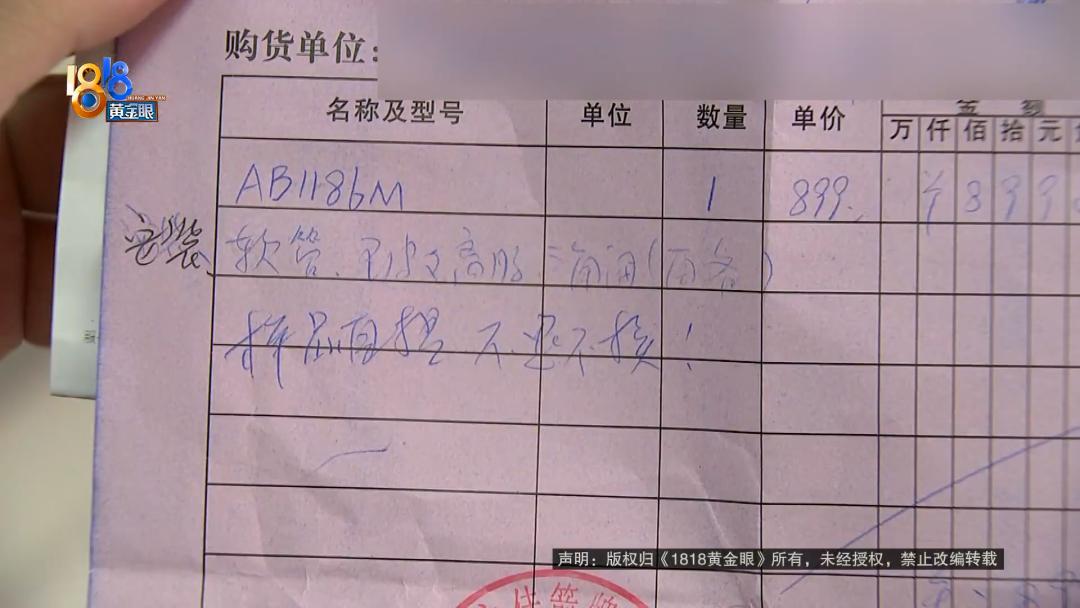 购货单位：
1818
HUANG JIN YAN
黄金眼
名称及型号 单位 数量 单价 金额
万 仟 佰 拾 元
AB1186M 1 899. ¥ 8 9 9
安装、软管、
样品自提 不退不换！
声明：版权归《1818黄金眼》所有，未经授权，禁止改编转载